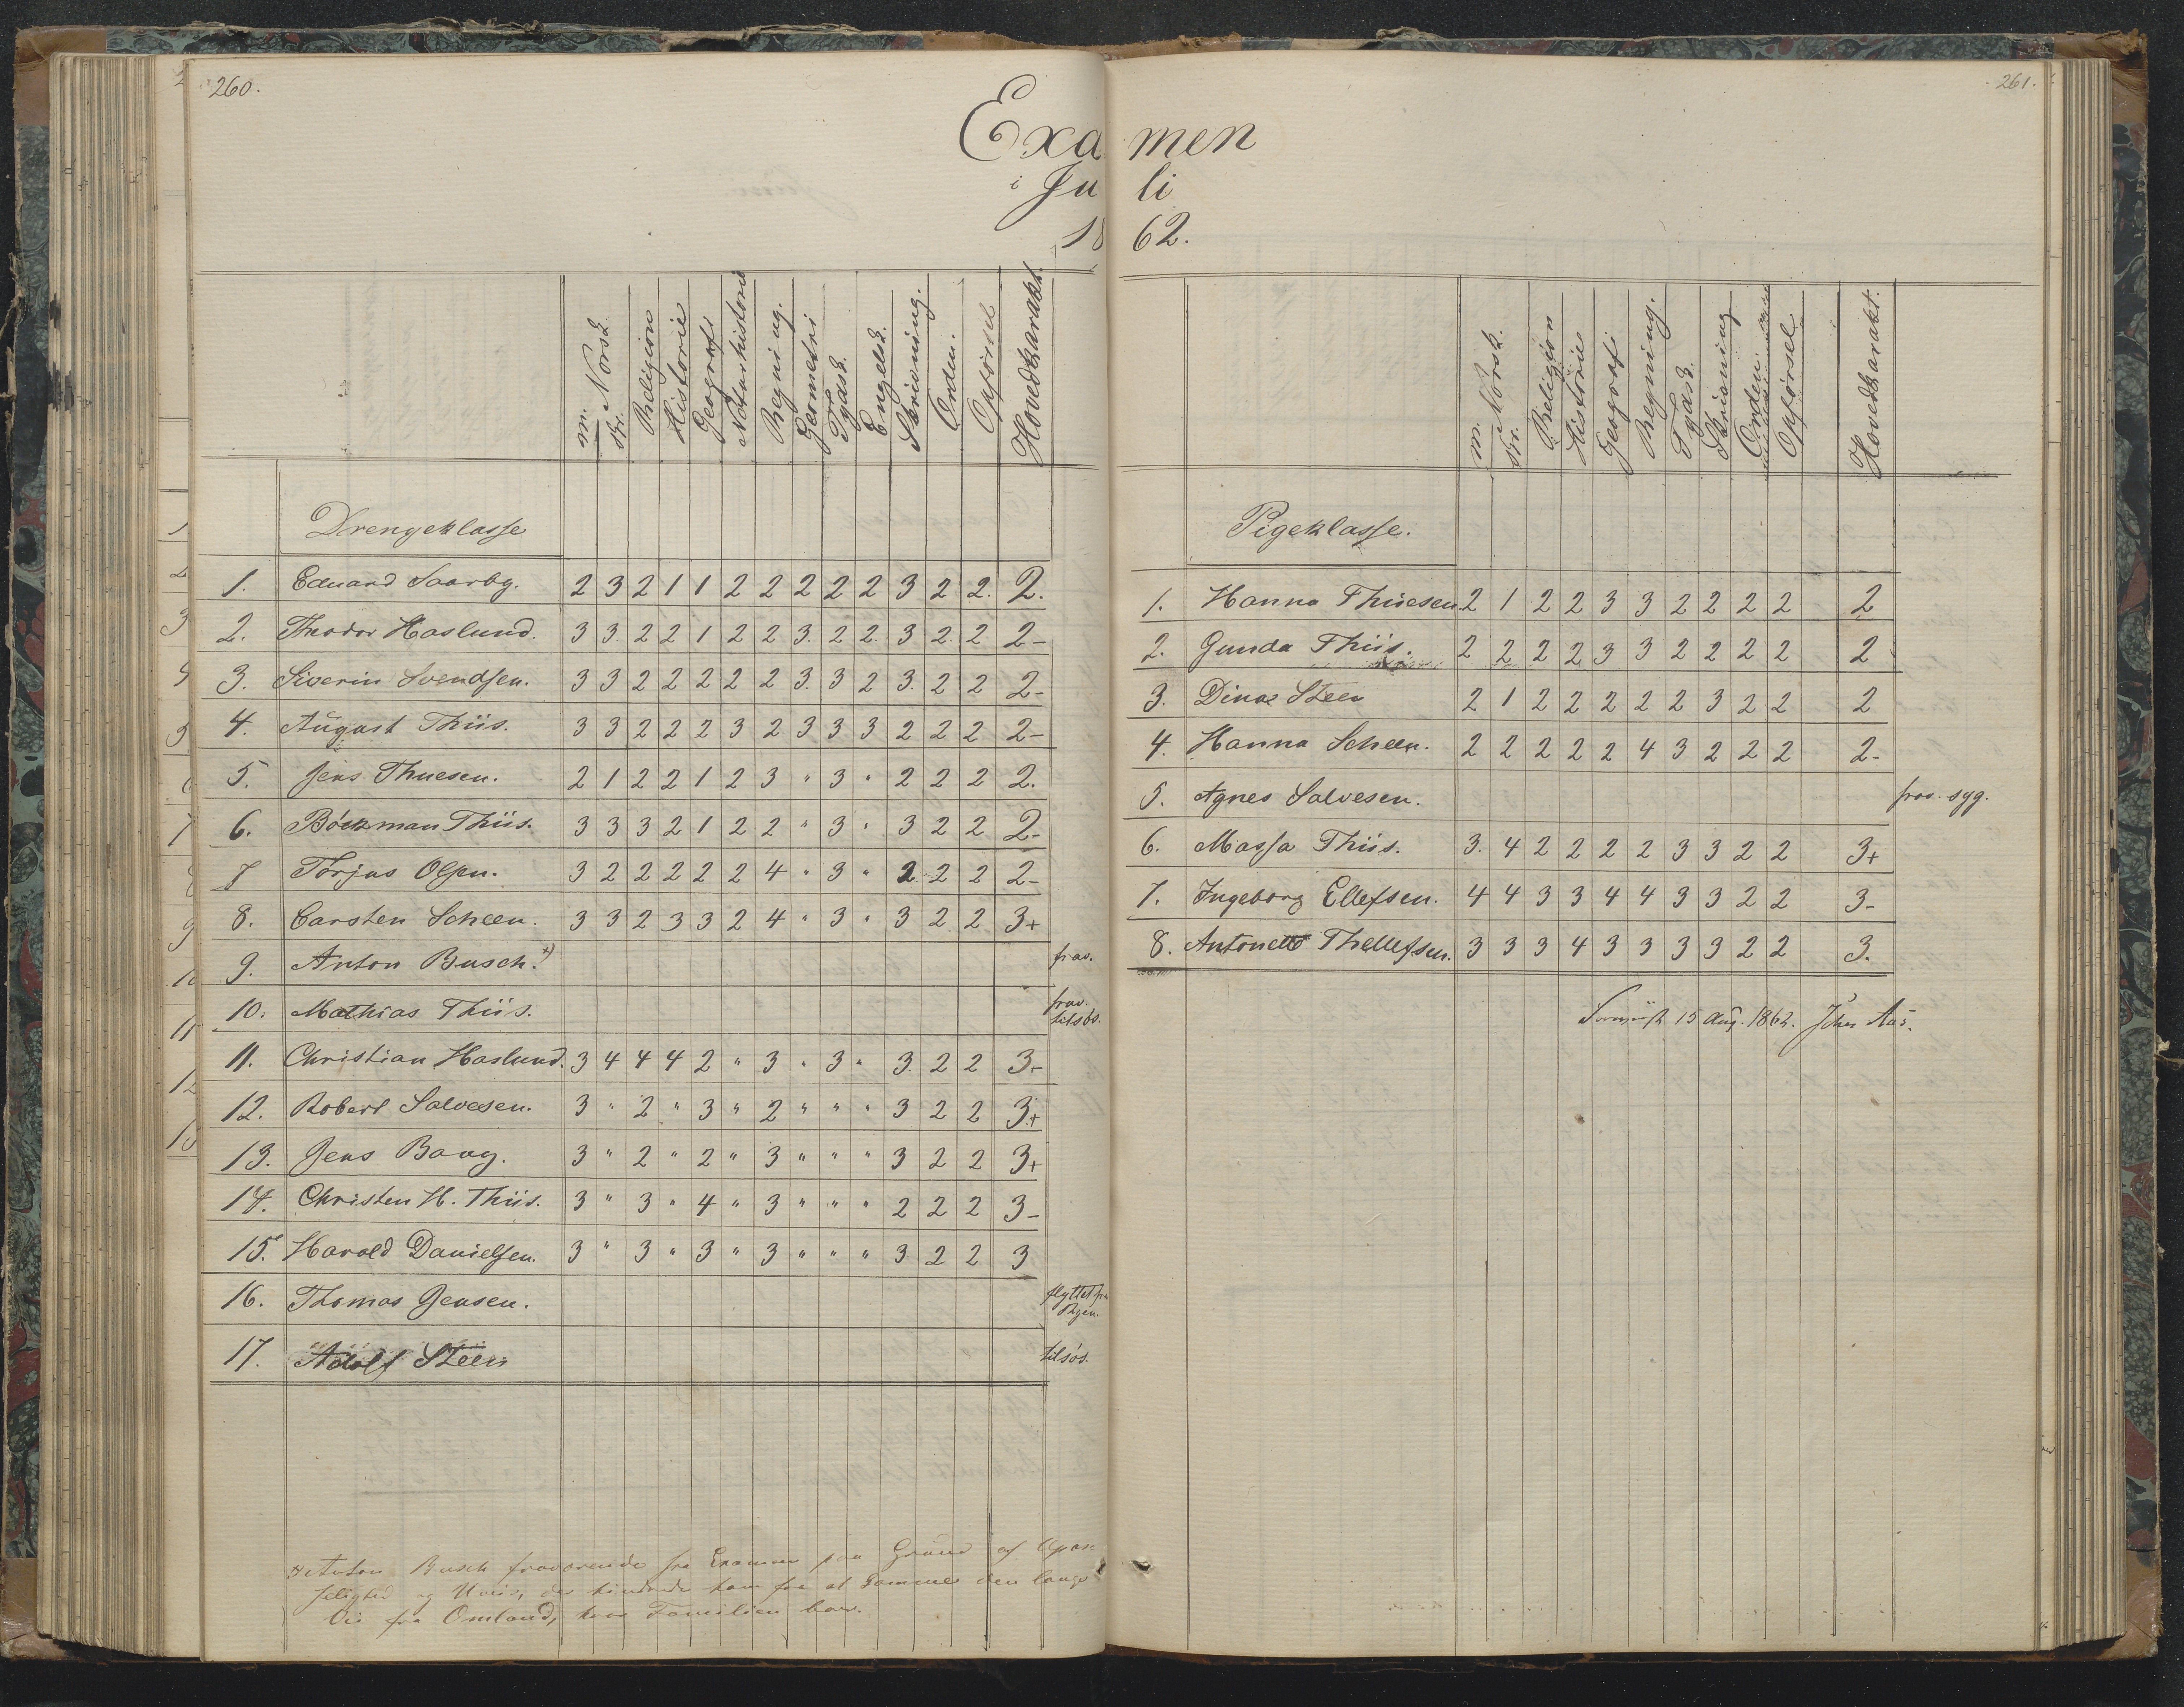 260.
Exa
i Ju
18
m. Norsk. skr. Religion Historie Geografi Naturhistorie Regning. Geometri Tydsk. Engelsk. Skrivning. Orden. Opførsel Hovedkarakt.
Drengeklasse
1. Eduard Saarby. 2 3 2 1 1 2 2 2 2 2 3 2 2. 2.
2. Theodor Haslund. 3 3 2 2 1 2 2 3. 2 2. 3 2. 2 2-
3. Siverin Svendsen. 3 3 2 2 2 2 2 3. 3 2 3. 2 2 2-
4. August Thiis. 3 3 2 2 2 3 2 3 3 3 2 2 2 2-
5. Jens Thuesen. 2 1 2 2 1 2 3 " 3 " 2 2 2 2.
6. Böckman Thiis. 3 3 3 2 1 2 2 " 3 " 3 2 2 2-
7 Torjus Olsen. 3 2 2 2 2 2 4 " 3 " 2 2 2 2-
8. Carsten Scheen. 3 3 2 3 3 2 4 " 3 " 3 2 2 3+
9. Anton Busch. *) frav.
10. Mathias Thiis. frav. tilsøs.
11. Christian Haslund. 3 4 4 4 2 " 3 " 3 " 3. 2 2 3-
12. Robert Salvesen. 3 " 2 " 3 " 2 " " " 3 2 2 3+
13. Jens Bang. 3 " 2 " 2 " 3 " " " 3 2 2 3+
14. Christen H. Thiis. 3 " 3 " 4 " 3 " " " 2 2 2 3-
15. Harald Danielsen. 3 " 3 " 3 " 3 " " " 3. 2 2 3
16. Thomas Jensen. flyttet fra Byen.
17. Adolf Steen tilsøs.
*) Anton Busch fraværende fra Examen paa Grund af
og Uveir, der hindrede ham fra at komme den lange
Vei fra Omland, hvor Familien bor.
261.
men
li
62.
m. Norsk. skr. Religion Historie Geografi Regning. Tydsk. Skrivning Orden Opførsel Hovedkarakt.
Pigeklasse.
1. Hanna Thuesen. 2 1 2 2 3 3 2 2 2 2 2
2. Gunda Thiis. 2 2 2 2 3 3 2 2 2 2 2
3. Dina Steen 2 1 2 2 2 2 2 3 2 2 2
4. Hanna Scheen. 2 2 2 2 2 4 3 2 2 2 2-
5. Agnes Salvesen. frav. syg.
6. Massa Thiis. 3. 4 2 2 2 2 3 3 2 2 3+
7. Ingeborg Ellefsen. 4 4 3 3 4 4 3 3 2 2 3-
8. Antonette Thellefsen. 3 3 3 4 3 3 3 3 2 2 3.
15 Aug. 1862. John Aas.